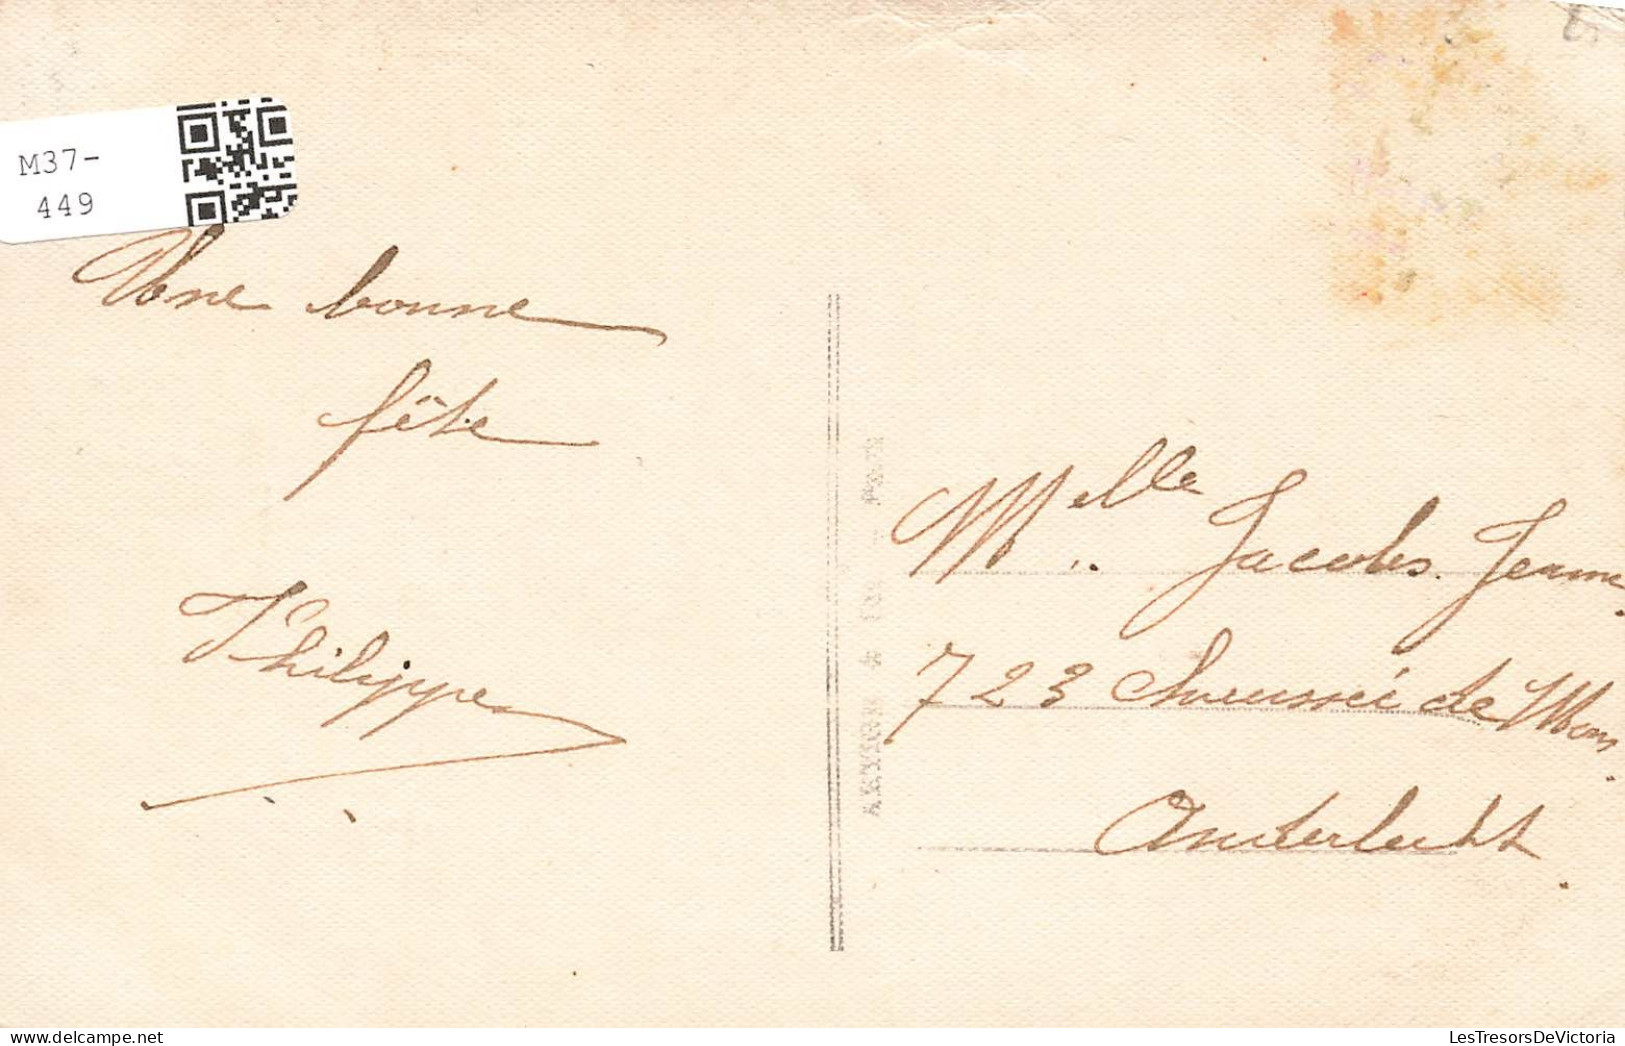 M37-
449
Une bonne
fête
Philippe
Melle Jacobs Jeanne
723 Chaussée de Mons
Anderlecht
delcampe.net
LesTresorsDeVictoria